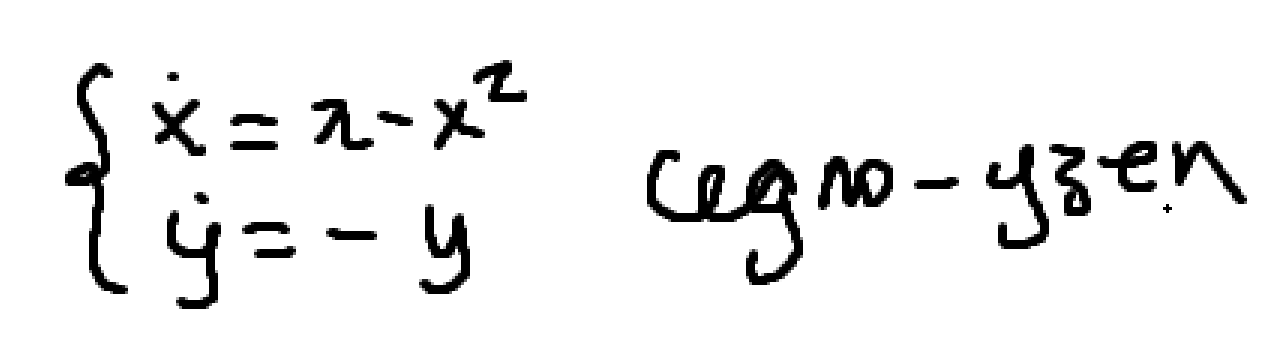 ẋ = λ - x²
ẏ = - y
седло - узел